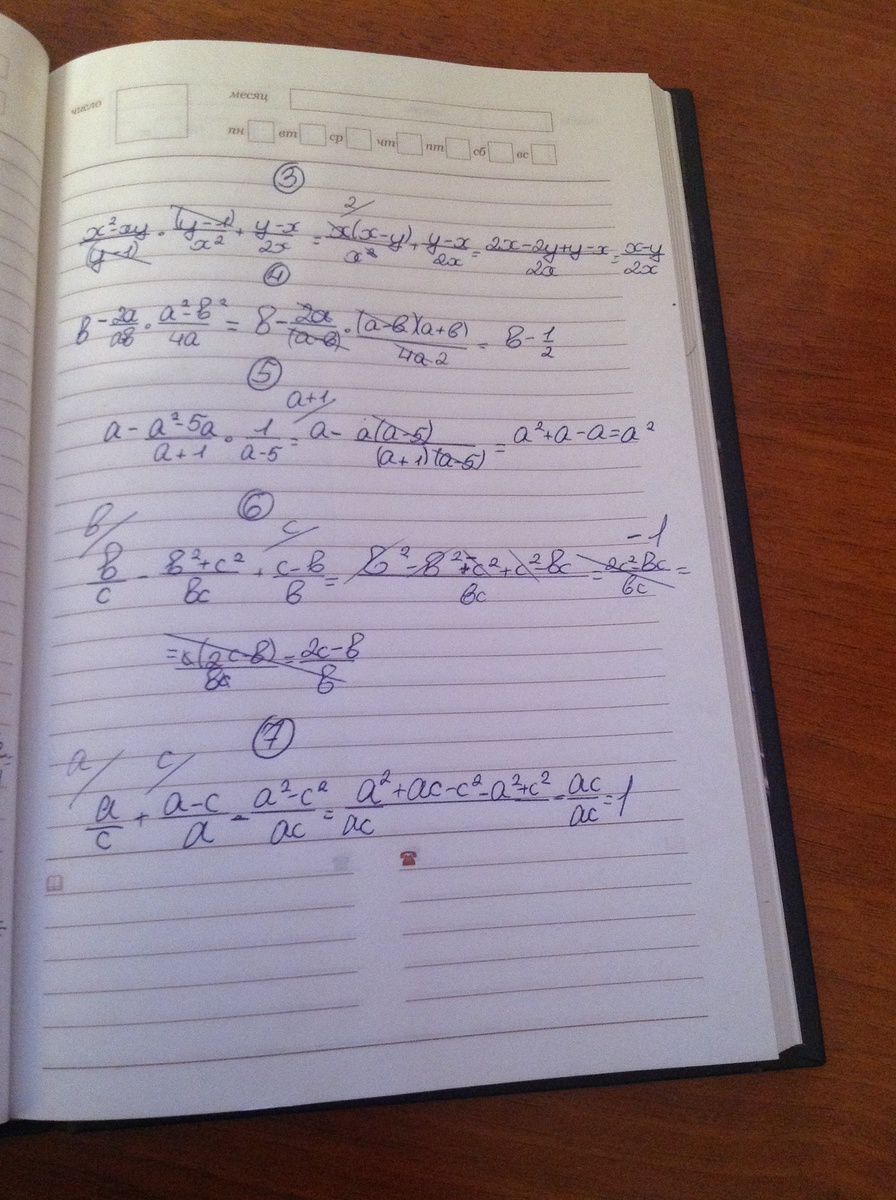 число
месяц
пн вт ср чт пт сб вс
③
2
(x²-xy)/(y-1) · (y-1)/x² + (y-x)/2x = x(x-y)/x² + (y-x)/2x = (2x-2y+y-x)/2x = (x-y)/2x
④
в - 2a/ · (a²-в²)/4a = в - 2a/(a-в) · (a-в)(a+в)/4a 2 = в - 1/2
⑤
a+1
a - (a²-5a)/(a+1) · 1/(a-5) = a - a(a-5)/((a+1)(a-5)) = a²+a-a=a²
⑥
в c -1
в/c - (в²+c²)/вc + (c-в)/в = /вc = (2c²-вc)/вc =
= c(2c-в)/вc = (2c-в)/в
⑦
a c
a/c + (a-c)/a - (a²-c²)/ac = (a²+ac-c²-a²+c²)/ac = ac/ac = 1